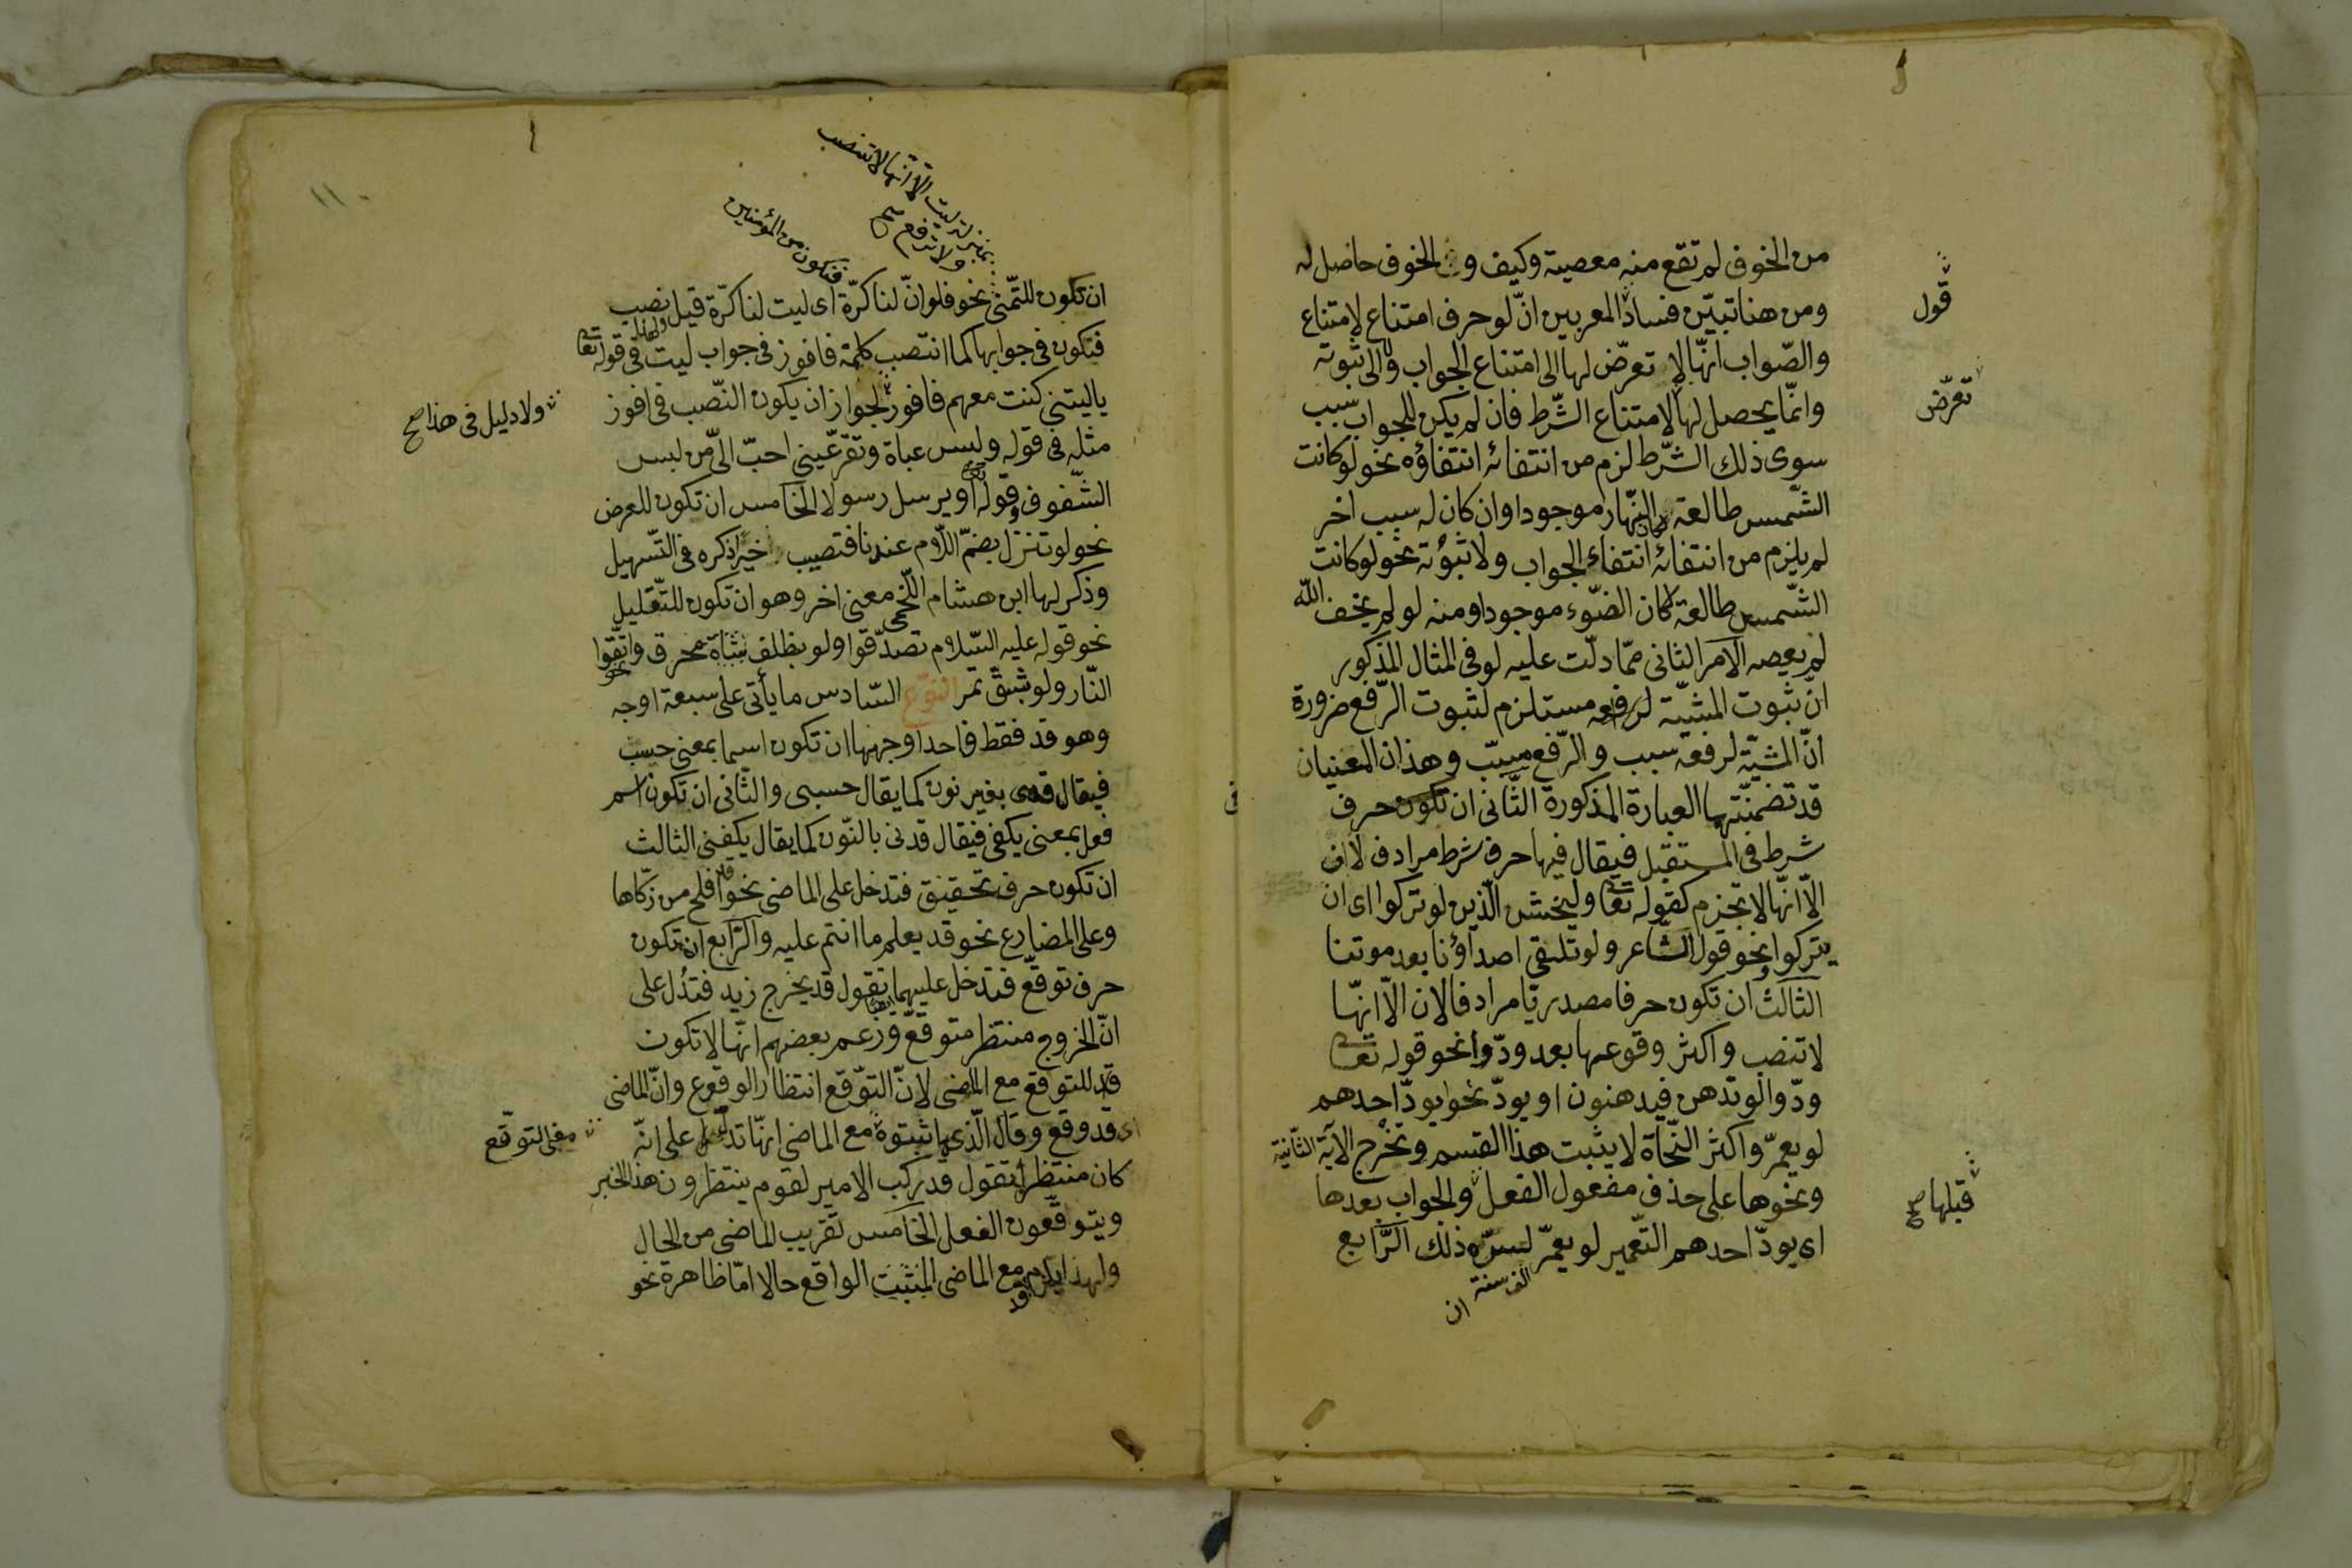 من الخوف لم تقع منه معصية وكيف والخوف حاصل له
ومن هنا تبيّن فساد المعربين انّ لو حرف امتناع لامتناع
قول
والصّواب انّها لا تعرّض لها الى امتناع الجواب ولا الى ثبوته
وانّما يحصل لها لامتناع الشّرط فان لم يكن للجواب سبب
تعرّض
سوى ذلك الشّرط لزم من انتفائه انتفاؤه نحو لو كانت
الشّمس طالعة كان النّهار موجودا وان كان له سبب اخر
لم يلزم من انتفائه انتفاء الجواب ولا ثبوته نحو لو كانت
الشّمس طالعة كان الضّوء موجودا ومنه لو لم يخف الله
لم يعصه الامر الثانى ممّا دلّت عليه لو فى المثال المذكور
انّ ثبوت المشيّة لرفعه مستلزم لثبوت الرّفع ضرورة
انّ المشيّة لرفعه سبب والرّفع مسبّب وهذان المعنيان
قد تضمنّتهما العبارة المذكورة الثّانى ان تكون حرف
شرط فى المستقبل فيقال فيها حرف شرط مرادف لان
الّا انّها لا تجزم كقوله تعا وليخش الّذين لو تركوا اى ان
يتركوا ونحو قول الشاعر ولو تلتقى اصداؤنا بعد موتنا
الثالث ان تكون حرفا مصدريّا مرادفا لان الّا انّها
لا تنصب واكثر وقوعها بعد ودّوا نحو قوله تعا
ودّوا لو تدهن فيدهنون او يودّ نحو يودّ احدهم
لو يعمّر واكثر النّحاة لا يثبت هذا القسم وتخرج الآية الثّانية
ونحوها على حذف مفعول الفعل والجواب بعدها
قبلها صح
اى يودّ احدهم التّعمير لو يعمّر الف سنة لسرّه ذلك الرّابع
ان
بمنزلة ليت الّا انّها لا تنصب
ولا ترفع صح
فنكون من المؤمنين
ان تكون للتّمنّى نحو فلو انّ لنا كرّة اى ليت لنا كرّة قيل نصب
فنكون فى جوابها كما انتصب كلمة فافوز فى جواب ليت فى قوله تعا
ولهذا
ياليتنى كنت معهم فافوز لجواز ان يكون النّصب فى افوز
ولا دليل فى هذا صح
مثله فى قوله ولبس عباة وتقرّ عينى احبّ الىّ من لبس
الشّفوف وقوله او يرسل رسولا الخامس ان تكون للعرض
نحو لو تنزل بضمّ اللّام عندنا فتصيب خيرا ذكره فى التّسهيل
وذكر لها ابن هشام اللّخمى معنى اخر وهو ان تكون للتّقليل
نحو قوله عليه السّلام تصدّقوا ولو بظلف شاة محرق واتّقوا
النّار ولو بشقّ تمر النّوع السّادس ما يأتى على سبعة اوجه
وهو قد فقط فاحد اوجهها ان تكون اسما بمعنى حسب
فيقال قدى بغير نون كما يقال حسبى والثّانى ان تكون اسم
فعل بمعنى يكفى فيقال قدنى بالنّون كما يقال يكفنى الثالث
ان تكون حرف تحقيق فتدخل على الماضى نحو قد افلح من زكّاها
وعلى المضارع نحو قد يعلم ما انتم عليه والرّابع ان تكون
حرف توقّع فتدخل عليهما تقول قد يخرج زيد فتدل على
انّ الخروج منتظر متوقّع وزعم بعضهم انّها لا تكون
قد للتوقع مع الماضى لانّ التوّقع انتظار الوقوع وانّ الماضى
قد وقع وقال الّذى اثبتوه مع الماضى انّها تدلّ على انّه
معنى التوقّع
كان منتظرا تقول قد ركب الامير لقوم ينتظرون هذا الخبر
ويتوقّعون الفعل الخامس تقريب الماضى من الحال
ولهذا يلزم قد مع الماضى المثبت الواقع حالا امّا ظاهرة نحو